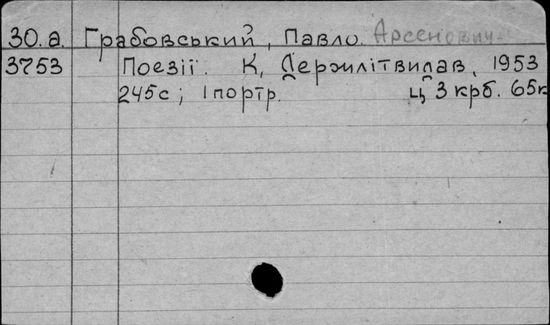 30.а. Грабовський, Павло. Арсенович.
3753 Поезії. К, Держлітвидав, 1953
245с; 1 портр. ц 3 крб. 65к